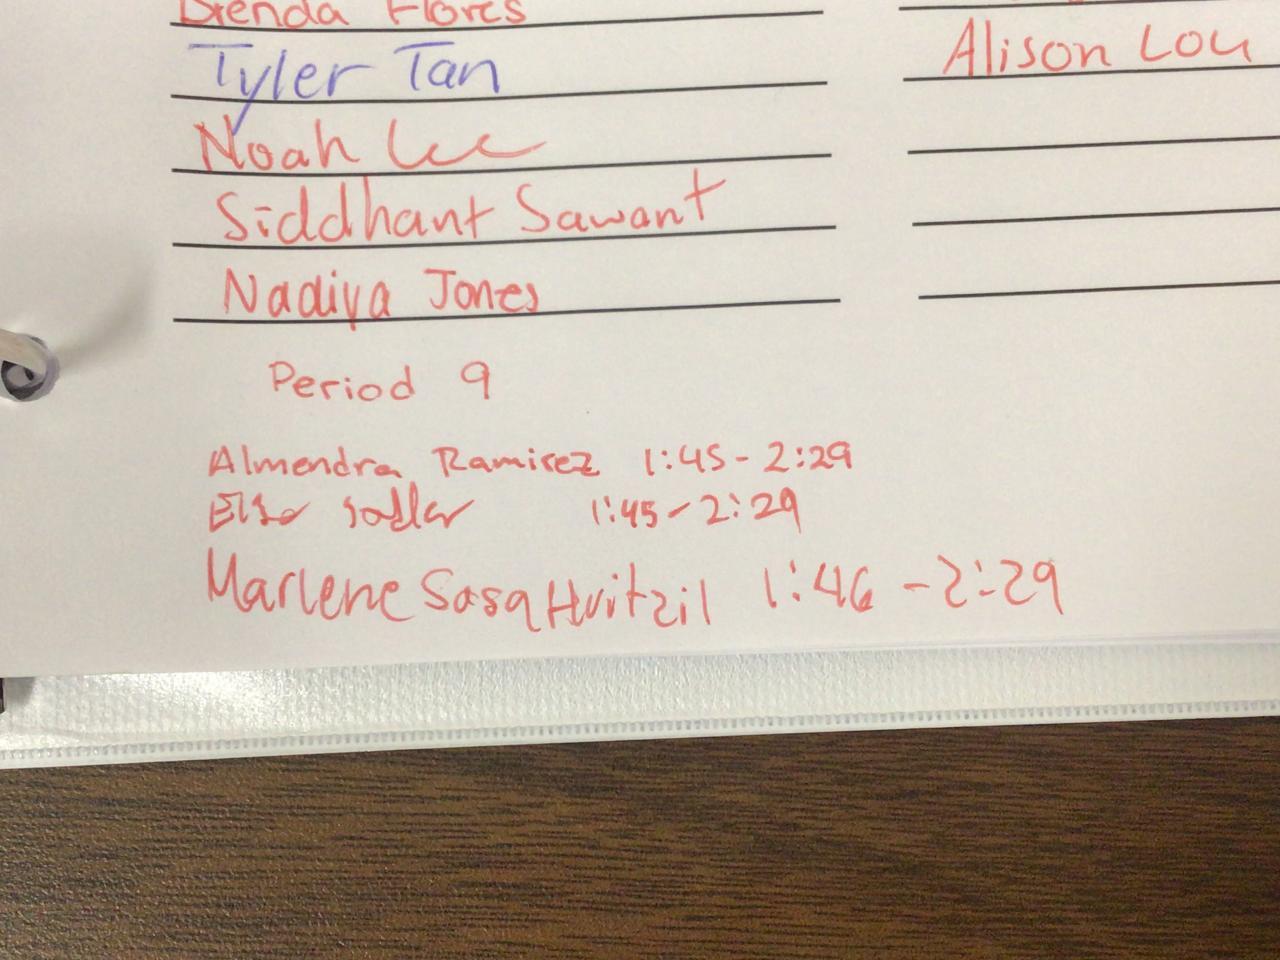 Brenda Flores
Tyler Tan
Noah Lee
Siddhant Sawant
Nadiya Jones
Alison Lou
Period 9
Almendra Ramirez 1:45-2:29
Elsa Sadler 1:45-2:29
Marlene Sasa Huitzil 1:46-2:29